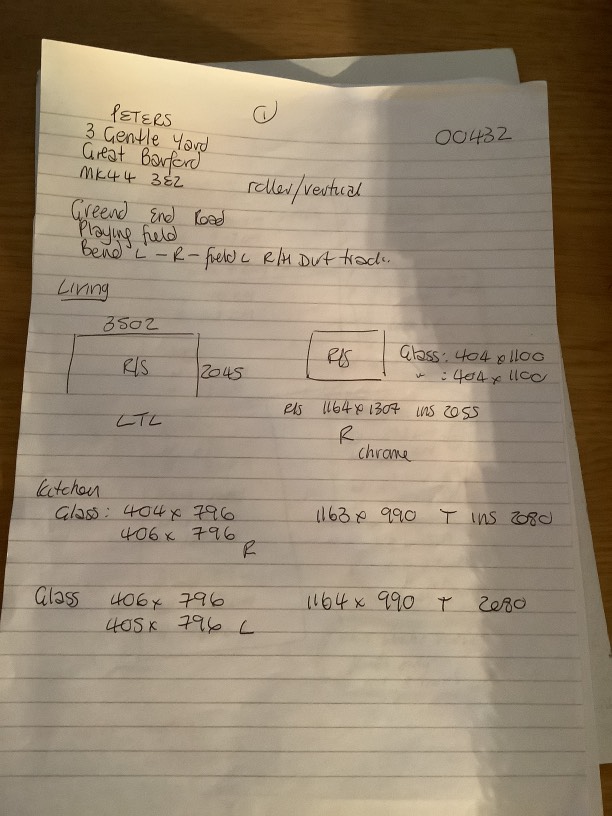 PETERS
①
3 Gentle Yard
00432
Great Barford
MK44 3EZ
roller/vertical
Greend End Road
Playing field
Bend L - R - field L R/H Dirt track.
Living
3502
R/S
2045
LTL
R/S
Glass: 404 x 1100
" : 404 x 1100
R/S 1164 x 1307 ins 2055
R
chrome
Kitchen
Glass: 404 x 796
1163 x 990 T ins 2080
406 x 796
R
Glass 406 x 796
1164 x 990 T 2080
405 x 796 L